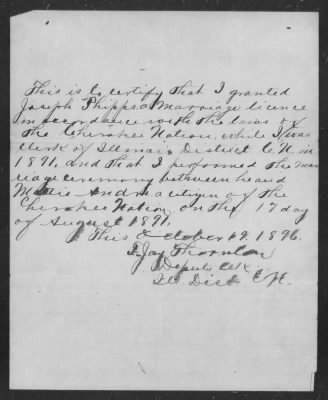 This is to certify that I granted
Joseph Phipps a Marriage licence
in accordance with the laws of
the Cherokee Nation, while I was
clerk of Illinois District C.N. in
1891, and that I performed the mar
riage ceremony between he and
Mattie a citizen of the
Cherokee Nation, on the 17 day
of August 1891,
This October 19, 1896.
Jay Thornton
Deputy Clk
Ill. Dist C.N.